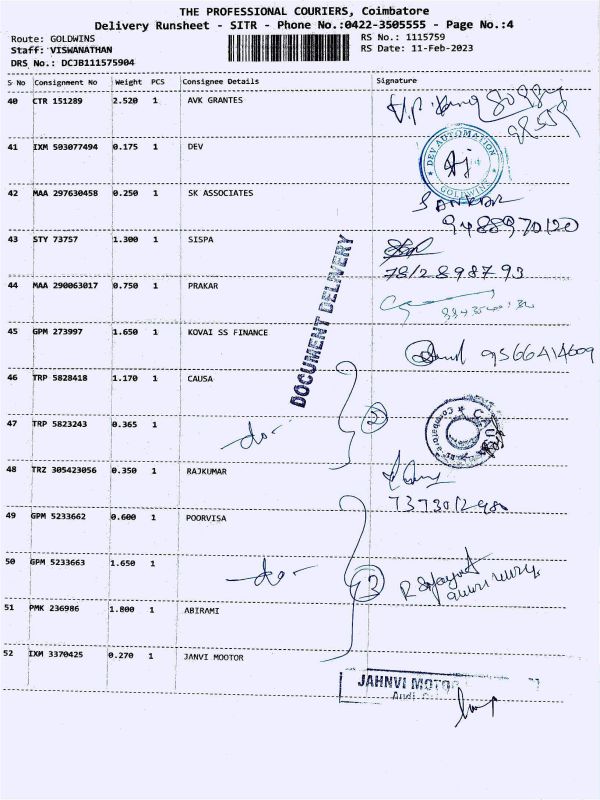 THE PROFESSIONAL COURIERS, Coimbatore
Delivery Runsheet - SITR - Phone No.:0422-3505555 - Page No.:4
Route: GOLDWINS
RS No.: 1115759
Staff: VISWANATHAN
RS Date: 11-Feb-2023
DRS No.: DCJB111575904
S No Consignment No Weight PCS Consignee Details Signature
40 CTR 151289 2.520 1 AVK GRANTES
41 IXM 593077494 0.175 1 DEV
DEV AUTOMATION
GOLDWINS
42 MAA 297630458 0.250 1 SK ASSOCIATES
SANKAR
9488970120
43 STY 73757 1.300 1 SISPA
7812898793
44 MAA 290063017 0.750 1 PRAKAR
DOCUMENT DELIVERY
45 GPM 273997 1.650 1 KOVAI SS FINANCE
9566414609
46 TRP 5828418 1.170 1 CAUSA
47 TRP 5823243 0.365 1
-do-
2
CAUSA
Coimbatore
48 TRZ 305423056 0.350 1 RAJKUMAR
49 GPM 5233662 0.600 1 POORVISA
50 GPM 5233663 1.650 1
-do-
3
51 PMK 236986 1.800 1 ABIRAMI
52 IXM 3370425 0.270 1 JANVI MOOTOR
JAHNVI MOTOR